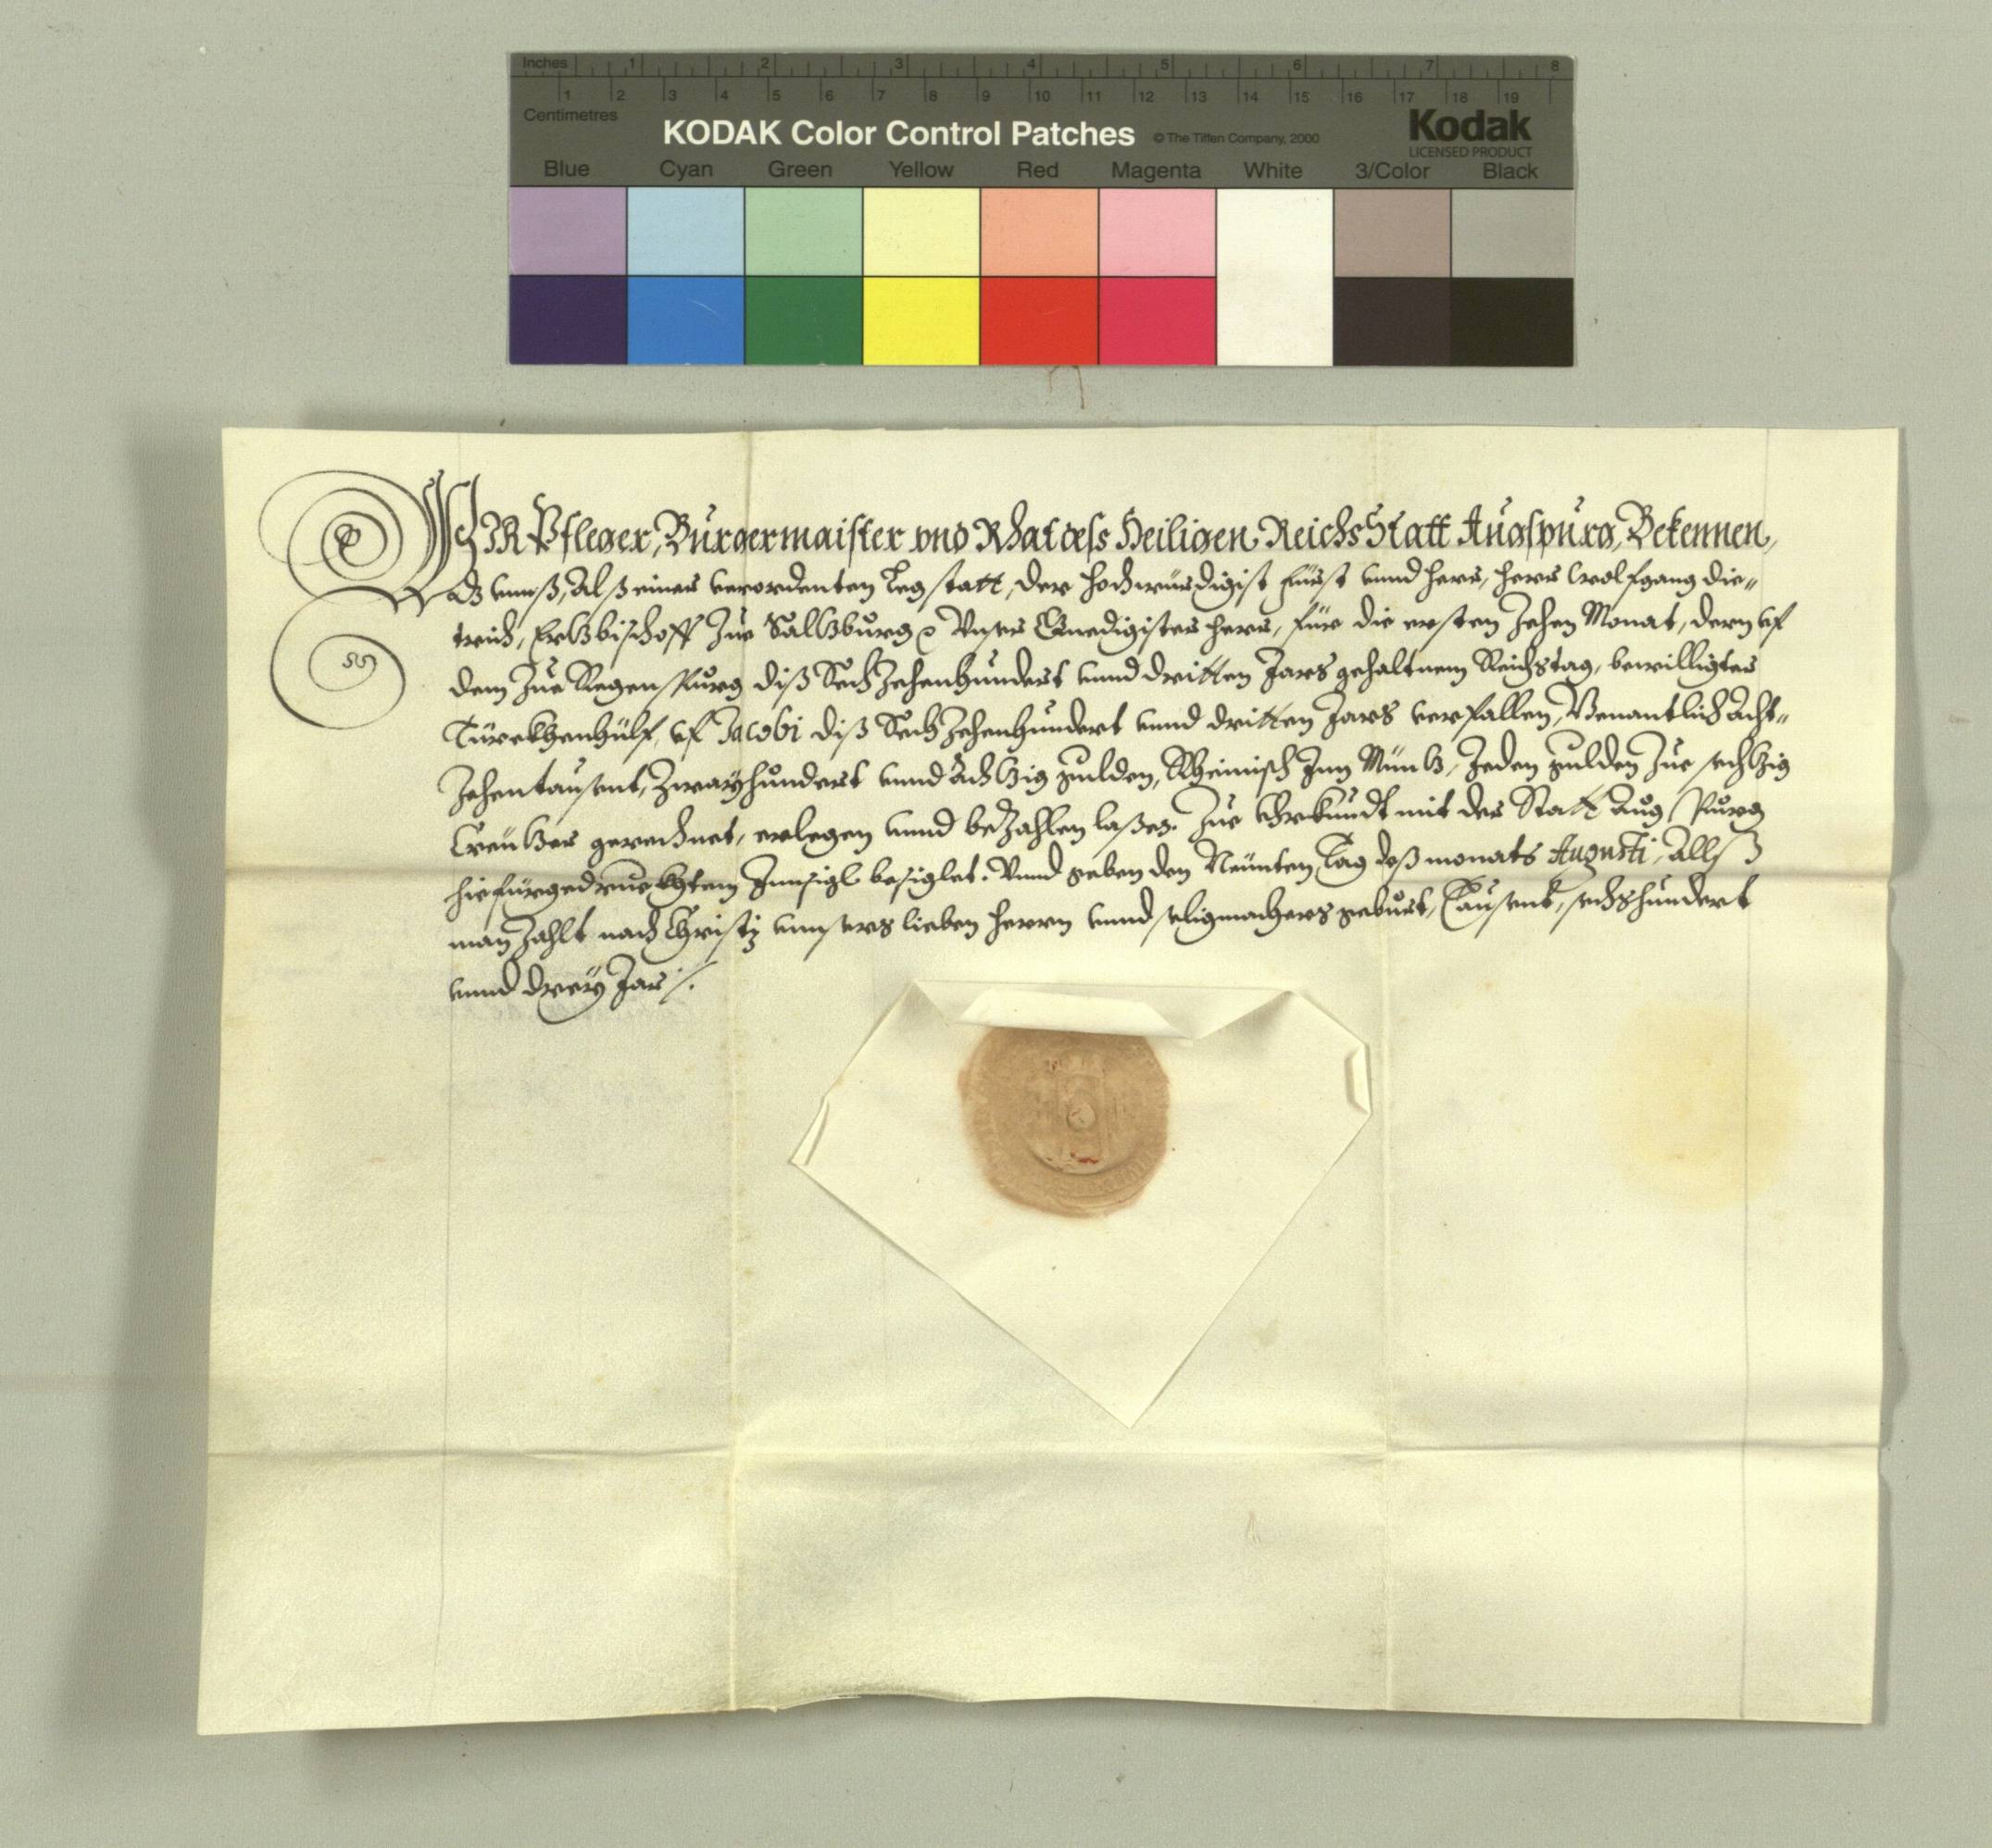 Inches 1 2 3 4 5 6 7 8
1 2 3 4 5 6 7 8 9 10 11 12 13 14 15 16 17 18 19
Centimetres
KODAK Color Control Patches © The Tiffen Company, 2000 Kodak
LICENSED PRODUCT
Blue Cyan Green Yellow Red Magenta White 3/Color Black
WIR Pfleger, Burgermaister vnd Rhat dess Heiligen Reichs Statt Augspurg, Bekennen,
dz vnnß, Alß einer verordenten Legstatt, der hochwürdigist Fürst vnnd herr, herr Wolfgang die„
trich, Ertzbischoff zue Saltzburg Vnser Gnedigister herr, für die ersten zehen Monat, dern vf
dem zue Regenspurg diß Sechzehenhundert vnnd dritten Jars gehaltnem Reichstag, bewilligter
Türckhenhülf, vf Jacobi diß Sechzehenhundert vnnd dritten Jars verfallen, Benantlich Acht„
zehentausent, Zwayhundert vnnd Achtzig gulden, Rheinisch Inn Müntz, Jeden gulden zue sechtzig
Creützer gerechnet, erlegen vnnd bezahlen laßen. Zue Vhrkundt mit der Statt Augspurg
hiefürgedruckhtem Innsigl besiglet. Vnnd geben den Neünten Tag deß monats Augusti, Allß
man zahlt nach Christi vnnsers lieben herrn vnnd seligmachers geburt, Tausent, sechshundert
vnnd drey Jar /.